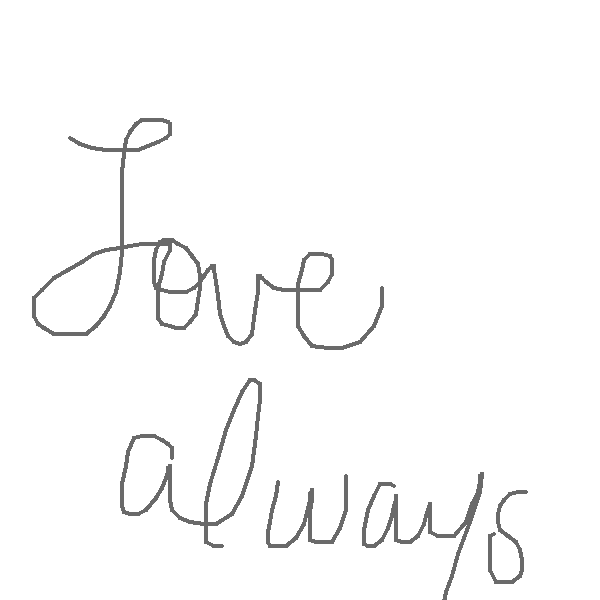 Love
always